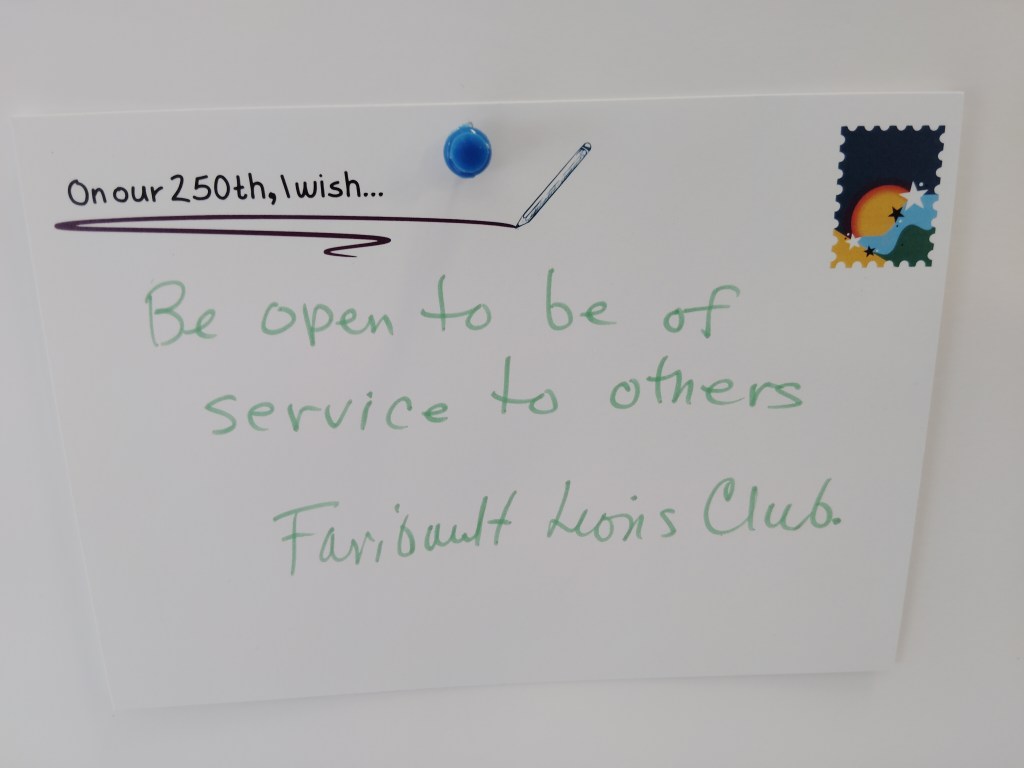 On our 250th, I wish...
Be open to be of
service to others
Faribault Lions Club.